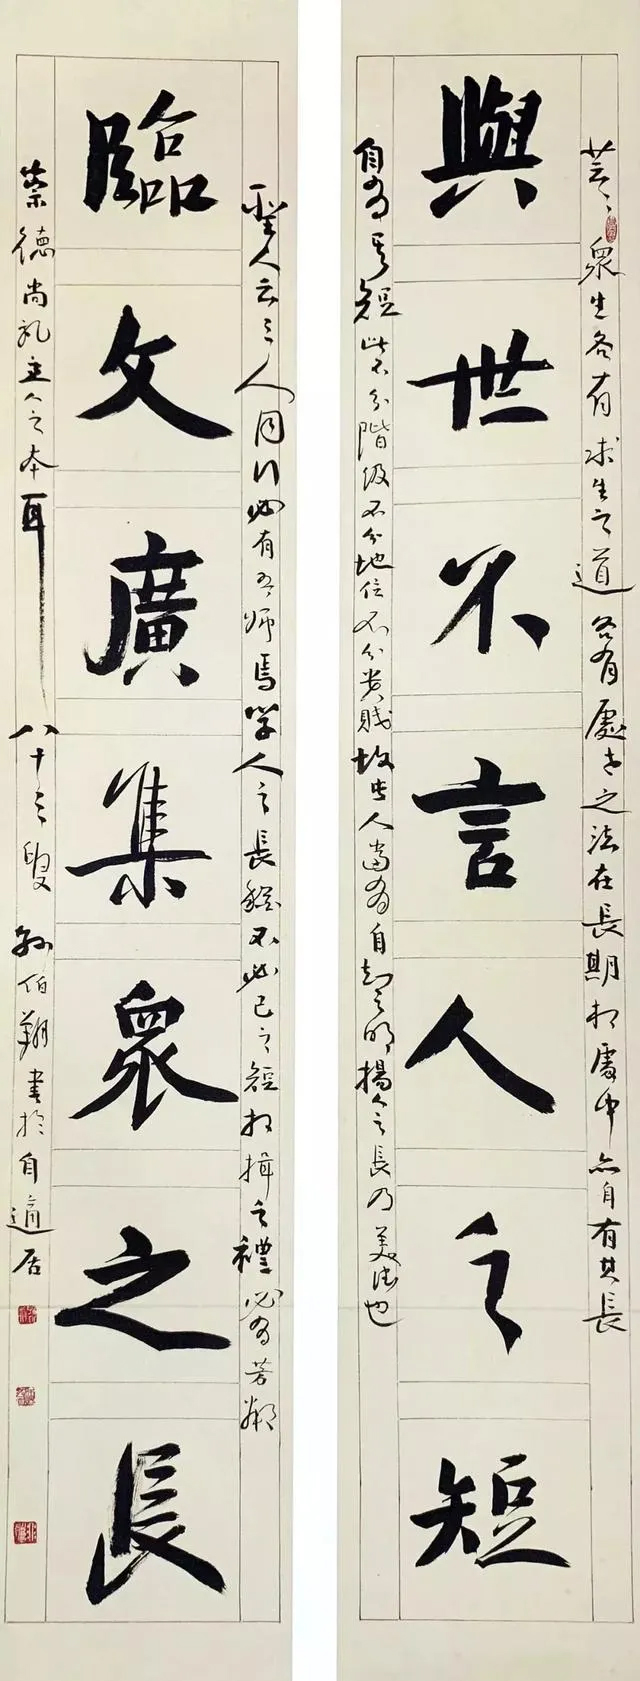 與世不言人之短
芸芸眾生各有求生之道各有處世之法在長期相處中亦自有其長
自為其短此不分階級不分地位不分貴賤故世人當為自知之明揚人之長乃美德也
臨文廣集眾之長
聖人云三人同行必有吾師焉學人之長 不必己之短 相揖之禮必為
崇德尚礼立人之本耳
八十三叟孙伯翔書於自適居